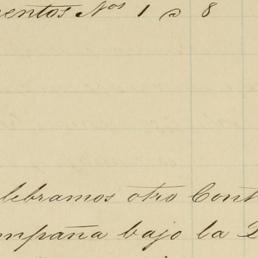 mentos Nos 1 a 8
lebramos otro Cont
mpaña bajo la D